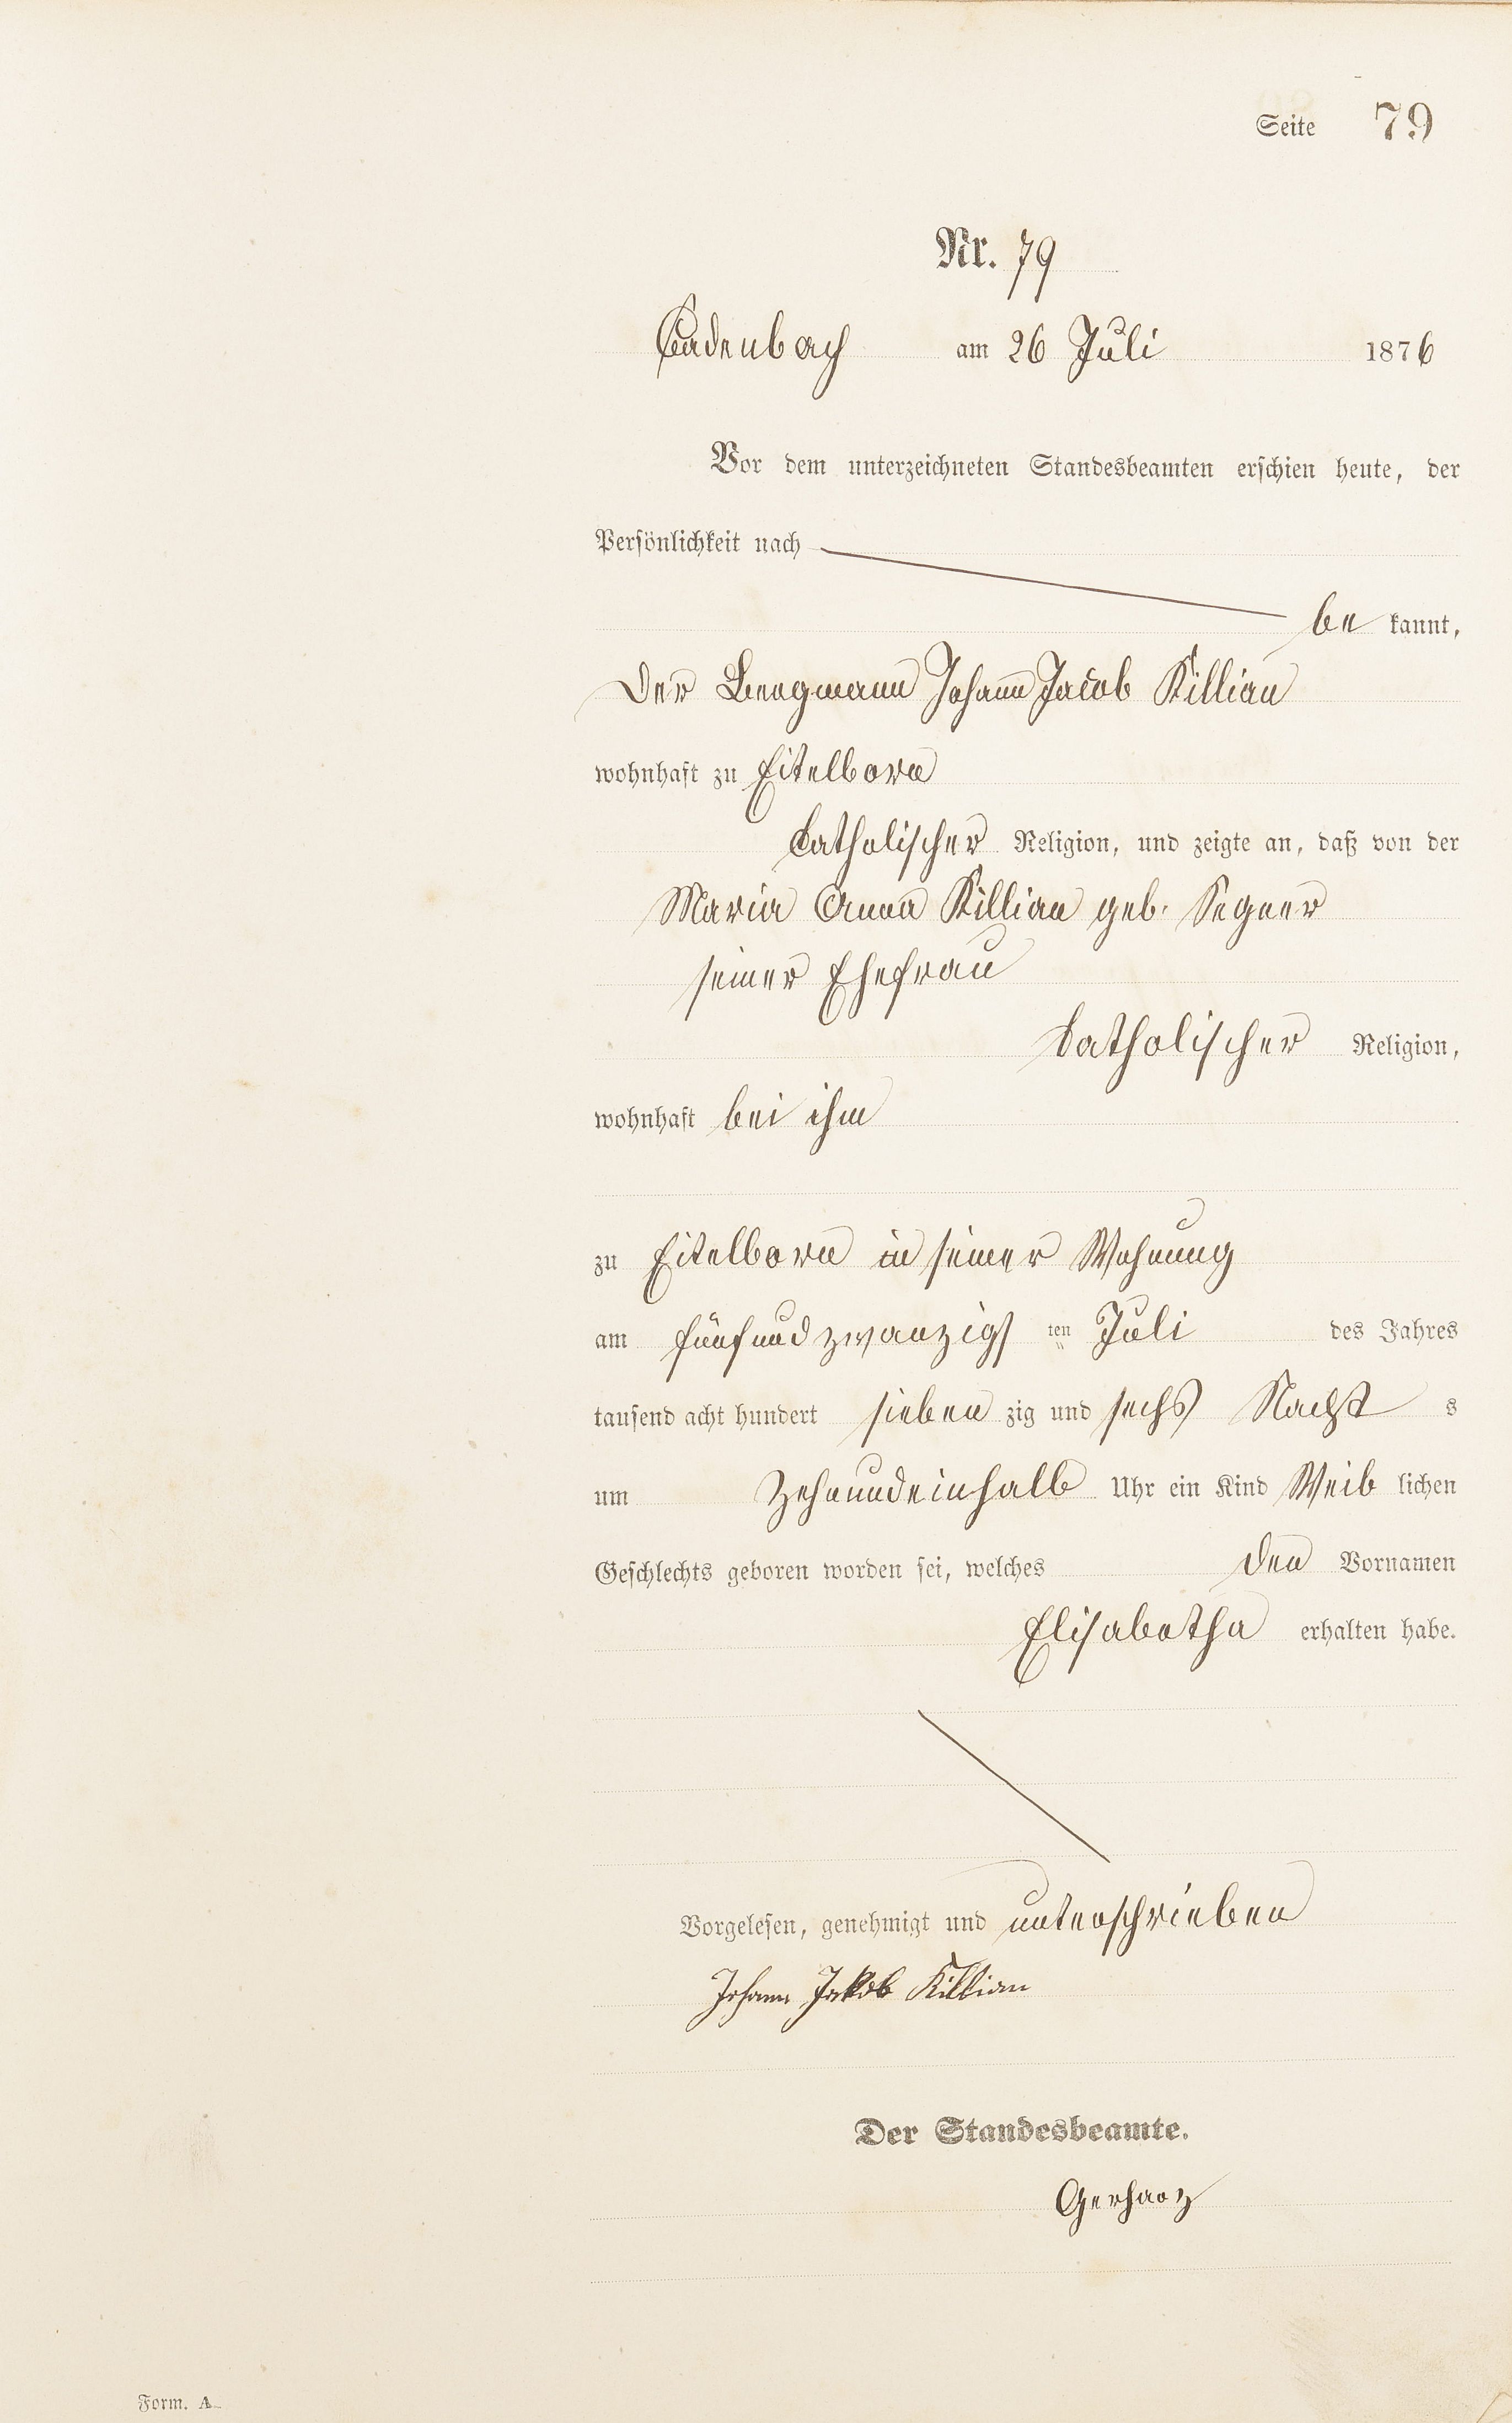 Seite 79
Nr. 79
Cadenbach am 26 Juli 1876
Vor dem unterzeichneten Standesbeamten erschien heute, der
Persönlichkeit nach
be kannt,
der Bergmann Johann Jacob Killian
wohnhaft zu Eitelborn
katholischer Religion, und zeigte an, daß von der
Maria Anna Killian geb. Segner
seiner Ehefrau
katholischer Religion,
wohnhaft bei ihm
zu Eitelborn in seiner Wohnung
am fünfundzwanzigs ten Juli des Jahres
tausend acht hundert sieben zig und sechs Nacht s
um Zehnundeinhalb Uhr ein Kind Weib lichen
Geschlechts geboren worden sei, welches den Vornamen
Elisabetha erhalten habe.
Vorgelesen, genehmigt und unterschrieben
Johann Jakob Killian
Der Standesbeamte.
Gerharz
Form. A.